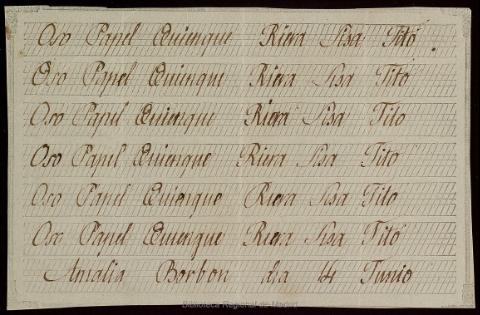 Oso Papel Quienque Riera Sisa Titó
Oso Papel Quienque Riera Sisa Titó
Oso Papel Quienque Riera Sisa Tito
Oso Papel Quienque Riera Sisa Tito
Oso Papel Quienque Riera Sisa Tito
Oso Papel Quienque Riera Sisa Titó
Amalia Borbon dia 4 Junio
Biblioteca Regional de Madrid